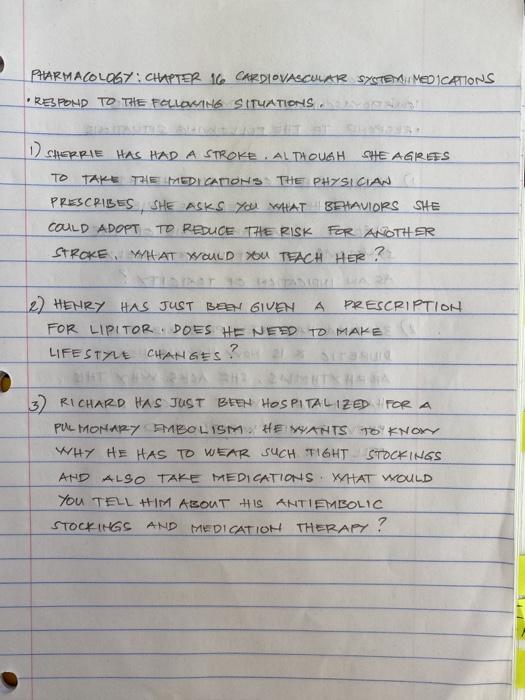 PHARMACOLOGY: CHAPTER 16 CARDIOVASCULAR SYSTEM MEDICATIONS
• RESPOND TO THE FOLLOWING SITUATIONS.
1) SHERRIE HAS HAD A STROKE. ALTHOUGH SHE AGREES
TO TAKE THE MEDICATIONS THE PHYSICIAN
PRESCRIBES, SHE ASKS YOU WHAT BEHAVIORS SHE
COULD ADOPT TO REDUCE THE RISK FOR ANOTHER
STROKE. WHAT WOULD YOU TEACH HER?
2) HENRY HAS JUST BEEN GIVEN A PRESCRIPTION
FOR LIPITOR. DOES HE NEED TO MAKE
LIFESTYLE CHANGES?
3) RICHARD HAS JUST BEEN HOSPITALIZED FOR A
PULMONARY EMBOLISM. HE WANTS TO KNOW
WHY HE HAS TO WEAR SUCH TIGHT STOCKINGS
AND ALSO TAKE MEDICATIONS. WHAT WOULD
YOU TELL HIM ABOUT HIS ANTIEMBOLIC
STOCKINGS AND MEDICATION THERAPY?